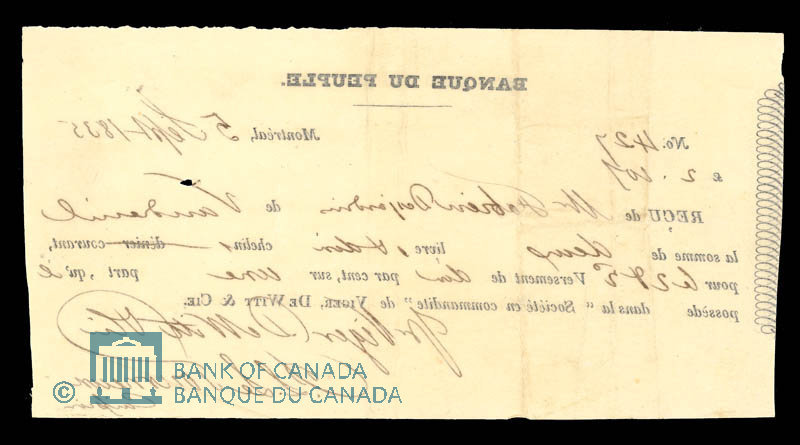 BANQUE DU PEUPLE.
No. 427
Montréal, 5 Sept. 1835
£ 2.10/
REÇU de Mr Fabien Desjardins de Vaudreuil
la somme de deux livres & dix chelins dénier courant,
pour le 2d Versement de dix par cent, sur, une part, qu'il
possède dans la "Société en commandite" de VIGER, DE WITT & CIE.
Viger DeWitt & Cie
BANK OF CANADA
© BANQUE DU CANADA